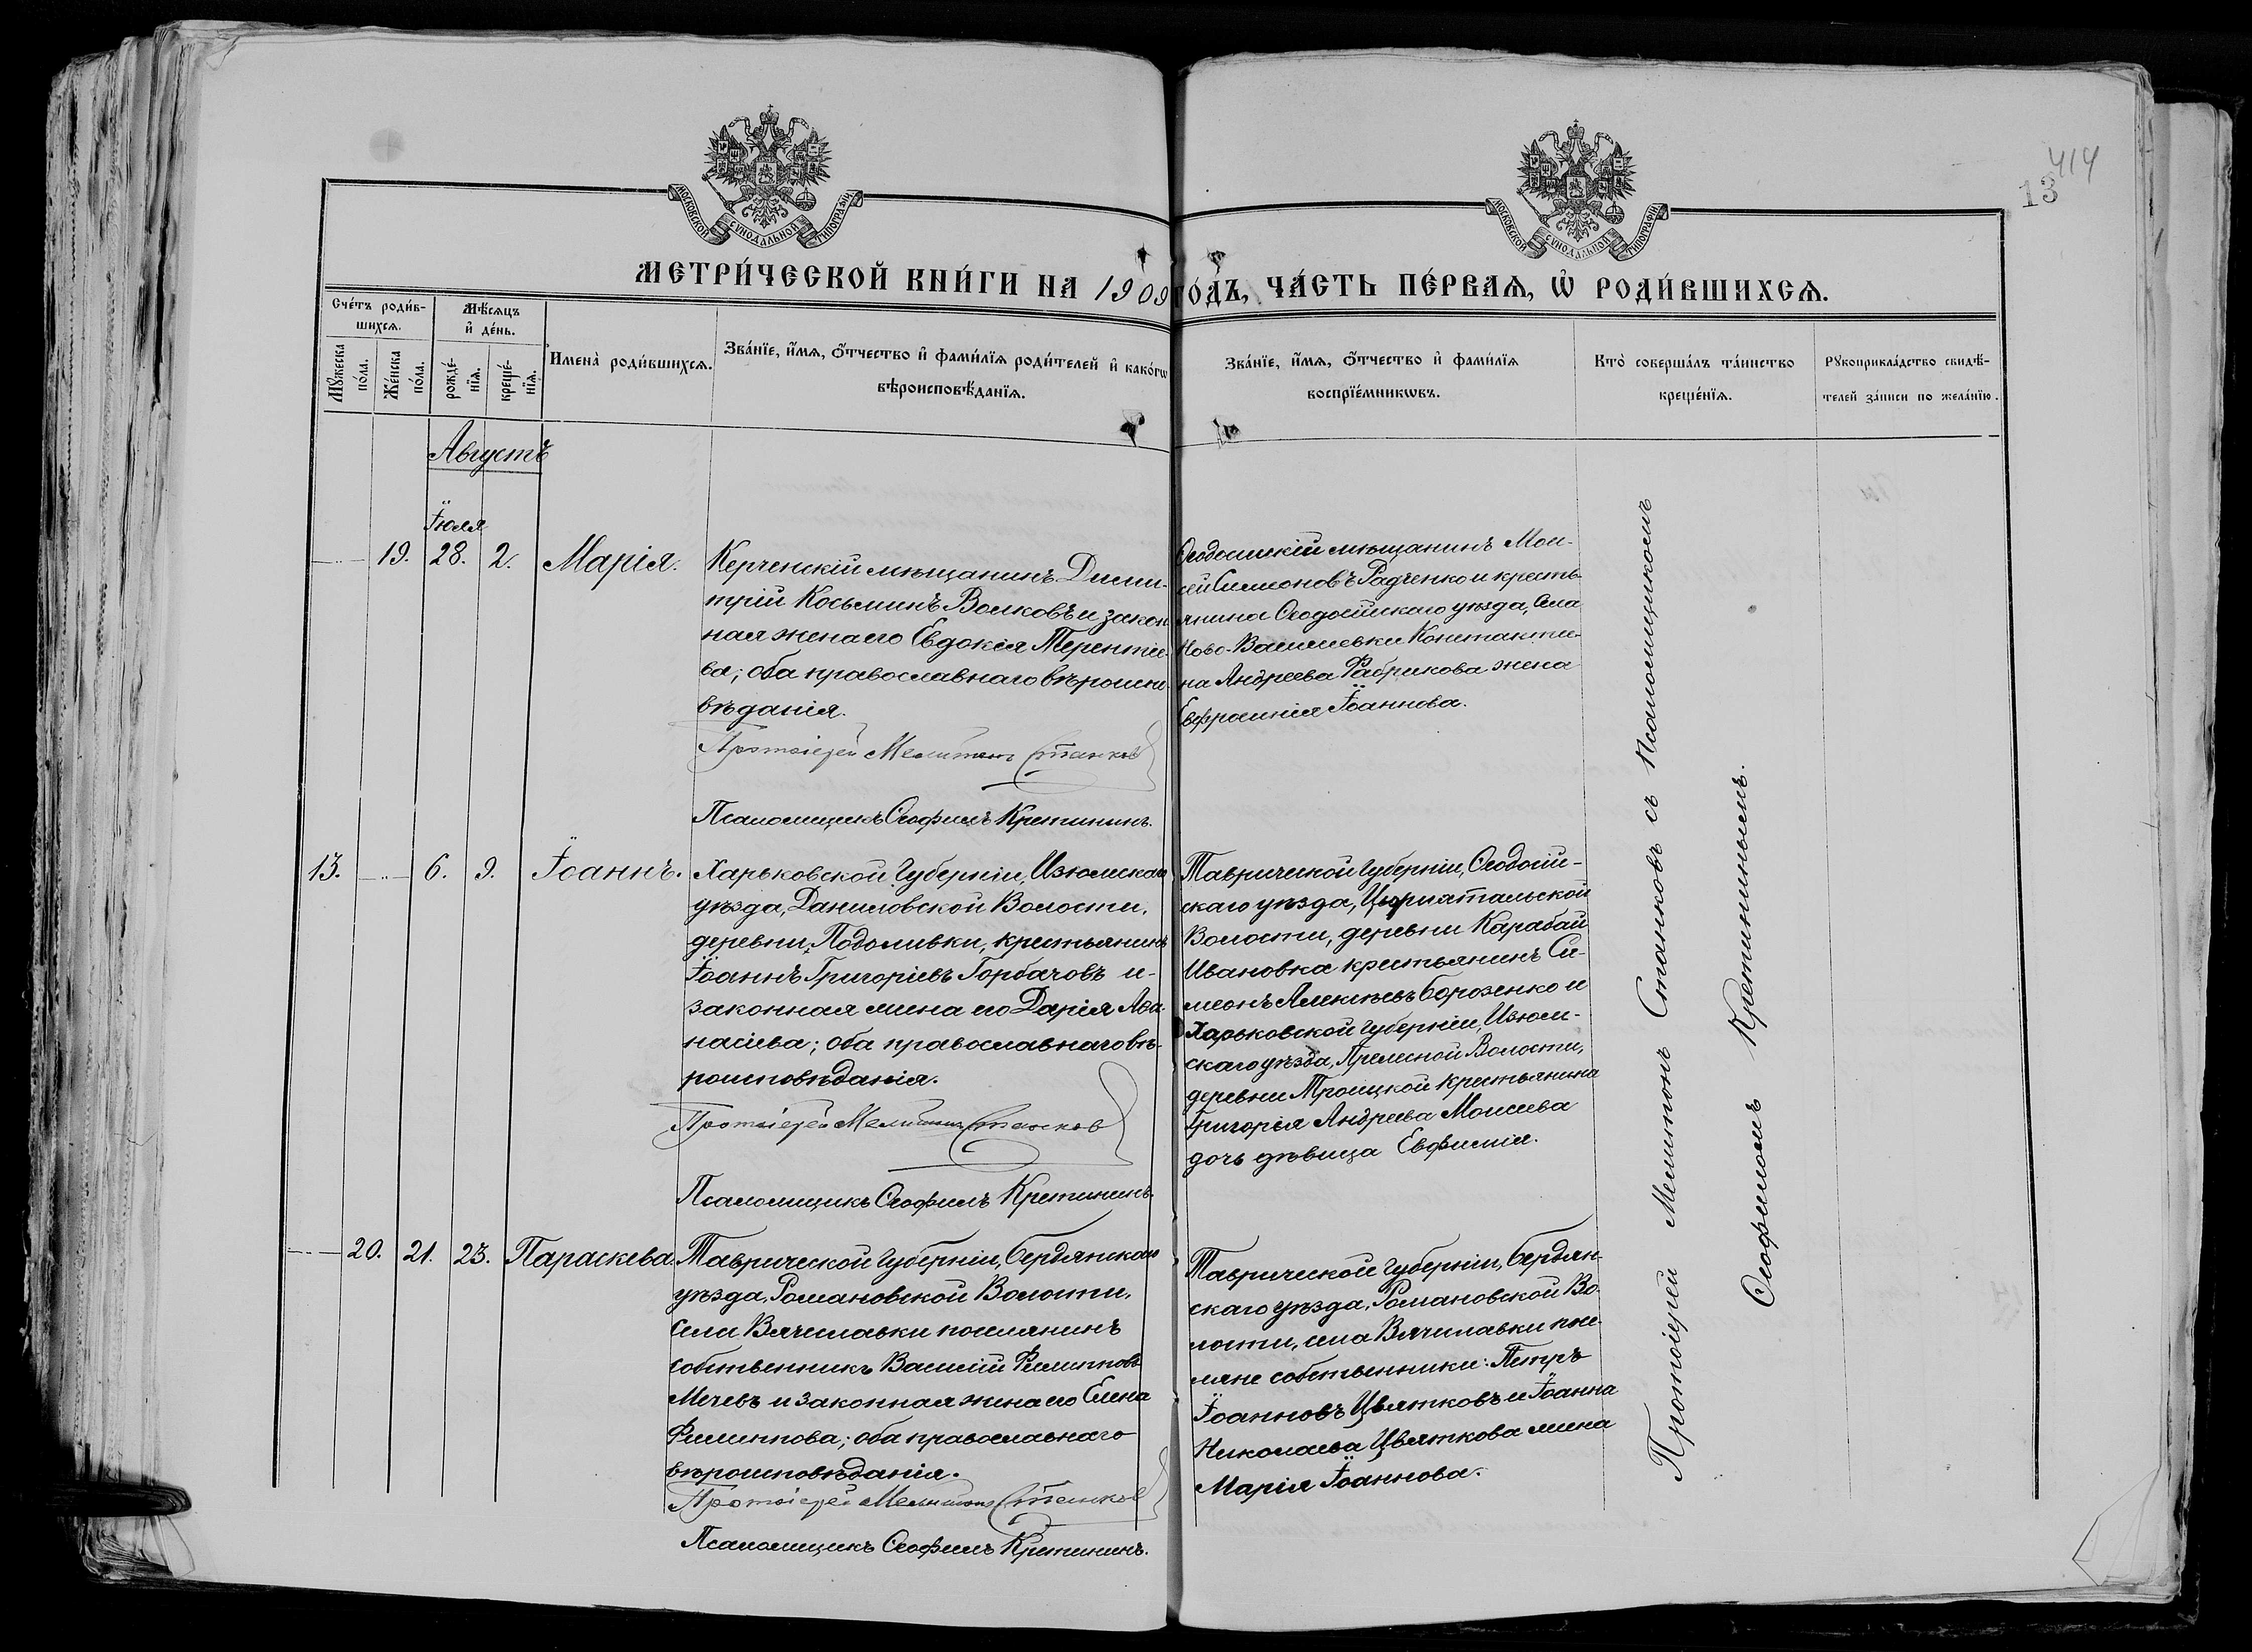 414
13
МОСКОВСКОЙ СѴНОДАЛЬНОЙ ТИПОГРАФІИ
МОСКОВСКОЙ СѴНОДАЛЬНОЙ ТИПОГРАФІИ
МЕТРИ́ЧЕСКОЙ КНИ́ГИ НА 1909 ГО́ДЪ, ЧА́СТЬ ПЕ́РВАѦ, Ѡ҆ РОДИ́ВШИХСѦ.
Сче́тъ роди́в-
шихсѧ.
Мѣ́сѧцъ
и҆ де́нь.
Мꙋ́жеска
по́ла.
Же́нска
по́ла.
рожде́-
нїѧ.
креще́-
нїѧ.
Имена̀ роди́вшихсѧ.
Зва́нїе, и҆́мѧ, ѻ҆́тчество и҆ фами́лїѧ роди́телей и҆ како́гѡ
вѣроисповѣ́данїѧ.
Зва́нїе, и҆́мѧ, ѻ҆́тчество и҆ фами́лїѧ
воспрїе́мникѡвъ.
Кто̀ соверша́лъ та́инство
креще́нїѧ.
Рꙋкоприкла́дство свидѣ́-
телей за́писи по жела́нїю.
Августъ
Іюля
19. 28. 2. Марія.
Керченскій мѣщанинъ Дими-
трій Косьминъ Волковъ и закон
ная жена его Евдокія Терентіе-
ва; оба православнаго вѣроиспо-
вѣданія.
Протоіерей Мелитонъ Станковъ
Псаломщикъ Ѳеофилъ Кретининъ.
Ѳеодосійскій мѣщанинъ Мои-
сей Симоновъ Радченко и кресть-
янина Ѳеодосійскаго уѣзда, села
Ново-Василевки Константи-
на Андреева Фабрикова жена
Евфросинія Іоаннова.
13. 6. 9. Іоаннъ.
Харьковской Губерніи, Изюмскаго
уѣзда, Даниловской Волости,
деревни Подоливки, крестьянинъ
Іоаннъ Григоріевъ Горбачовъ и
законная жена его Дарія Аѳа-
насіева; оба православнаго вѣ-
роисповѣданія.
Протоіерей Мелитонъ Станковъ
Псаломщикъ Ѳеофилъ Кретининъ.
Таврической Губерніи, Ѳеодосій-
скаго уѣзда,
Волости, деревни Карабай
Ивановка крестьянинъ Си-
меонъ Алексѣевъ Борозенко и
Харьковской Губерніи, Изюм-
скаго уѣзда, Прелесной Волости,
деревни Троицкой крестьянина
Григорія Андреева Моисеева
дочь дѣвица Евфимія.
20. 21. 23. Параскева.
Таврической Губерніи, Бердянскаго
уѣзда, Романовской Волости,
села Вячеславки поселянинъ
собственникъ Василій Филипповъ
Мечевъ и законная жена его Елена
Филиппова; оба православнаго
вѣроисповѣданія.
Протоіерей Мелитонъ Станковъ
Псаломщикъ Ѳеофилъ Кретининъ.
Таврической Губерніи, Бердян-
скаго уѣзда, Романовской Во-
лости, села Вячеславки посе-
ляне собственники: Петръ
Іоанновъ Цвятковъ и Іоанна
Николаева Цвяткова жена
Марія Іоаннова.
Протоіерей Мелитонъ Станковъ съ псаломщикомъ
Ѳеофиломъ Кретининымъ.